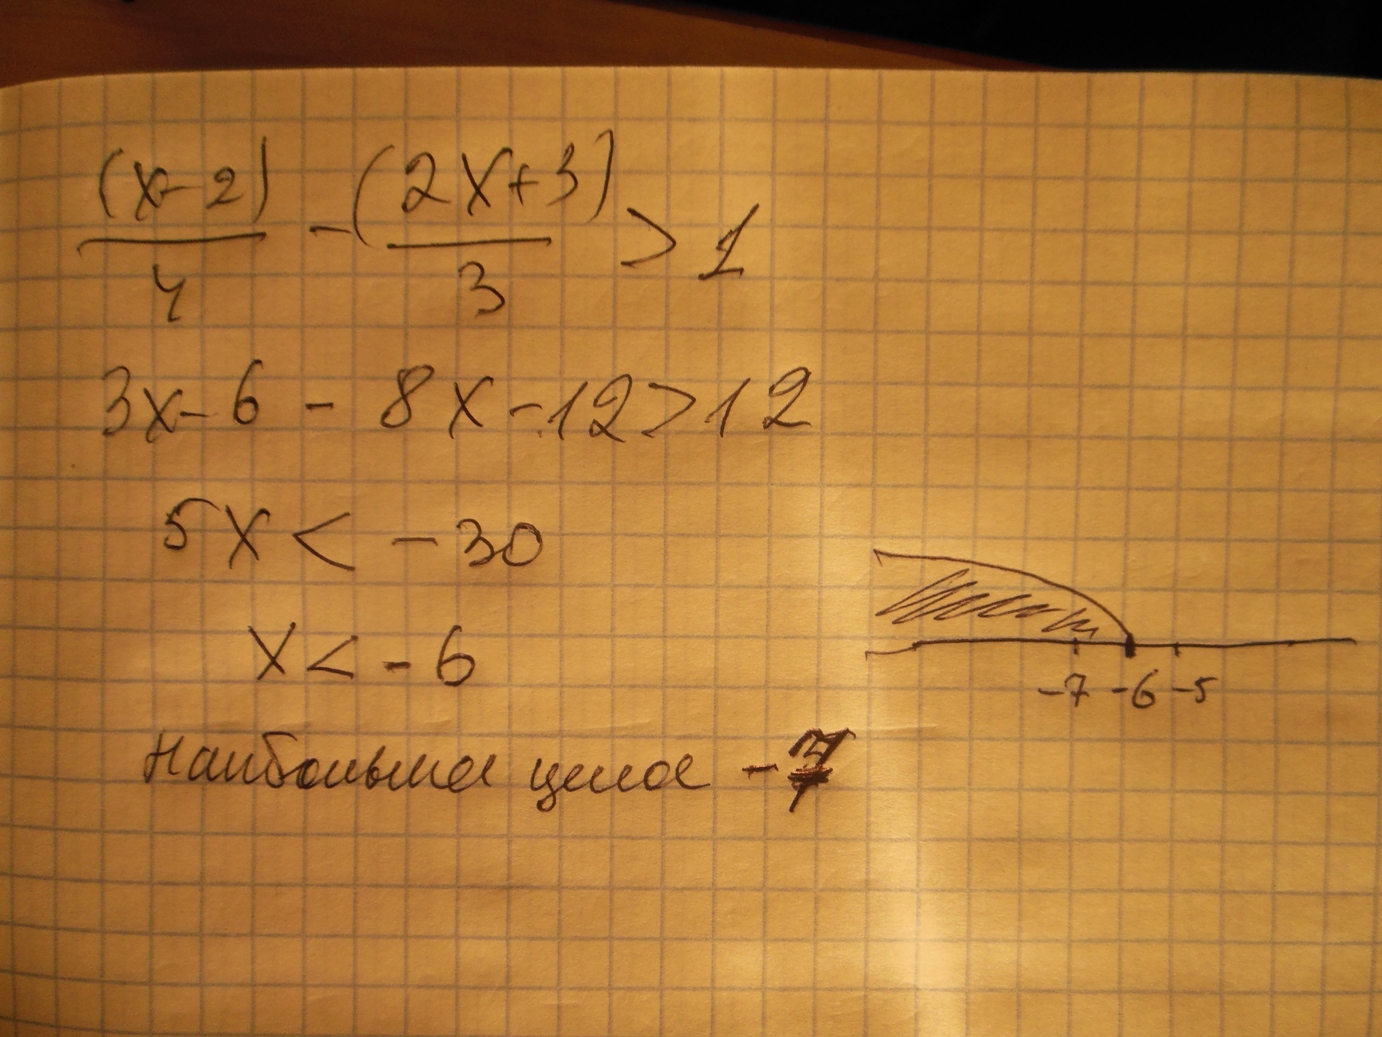 (x-2)/4 - (2x+3)/3 > 1
3x - 6 - 8x - 12 > 12
5x < - 30
x < - 6
-7 -6 -5
Наибольшее целое -7